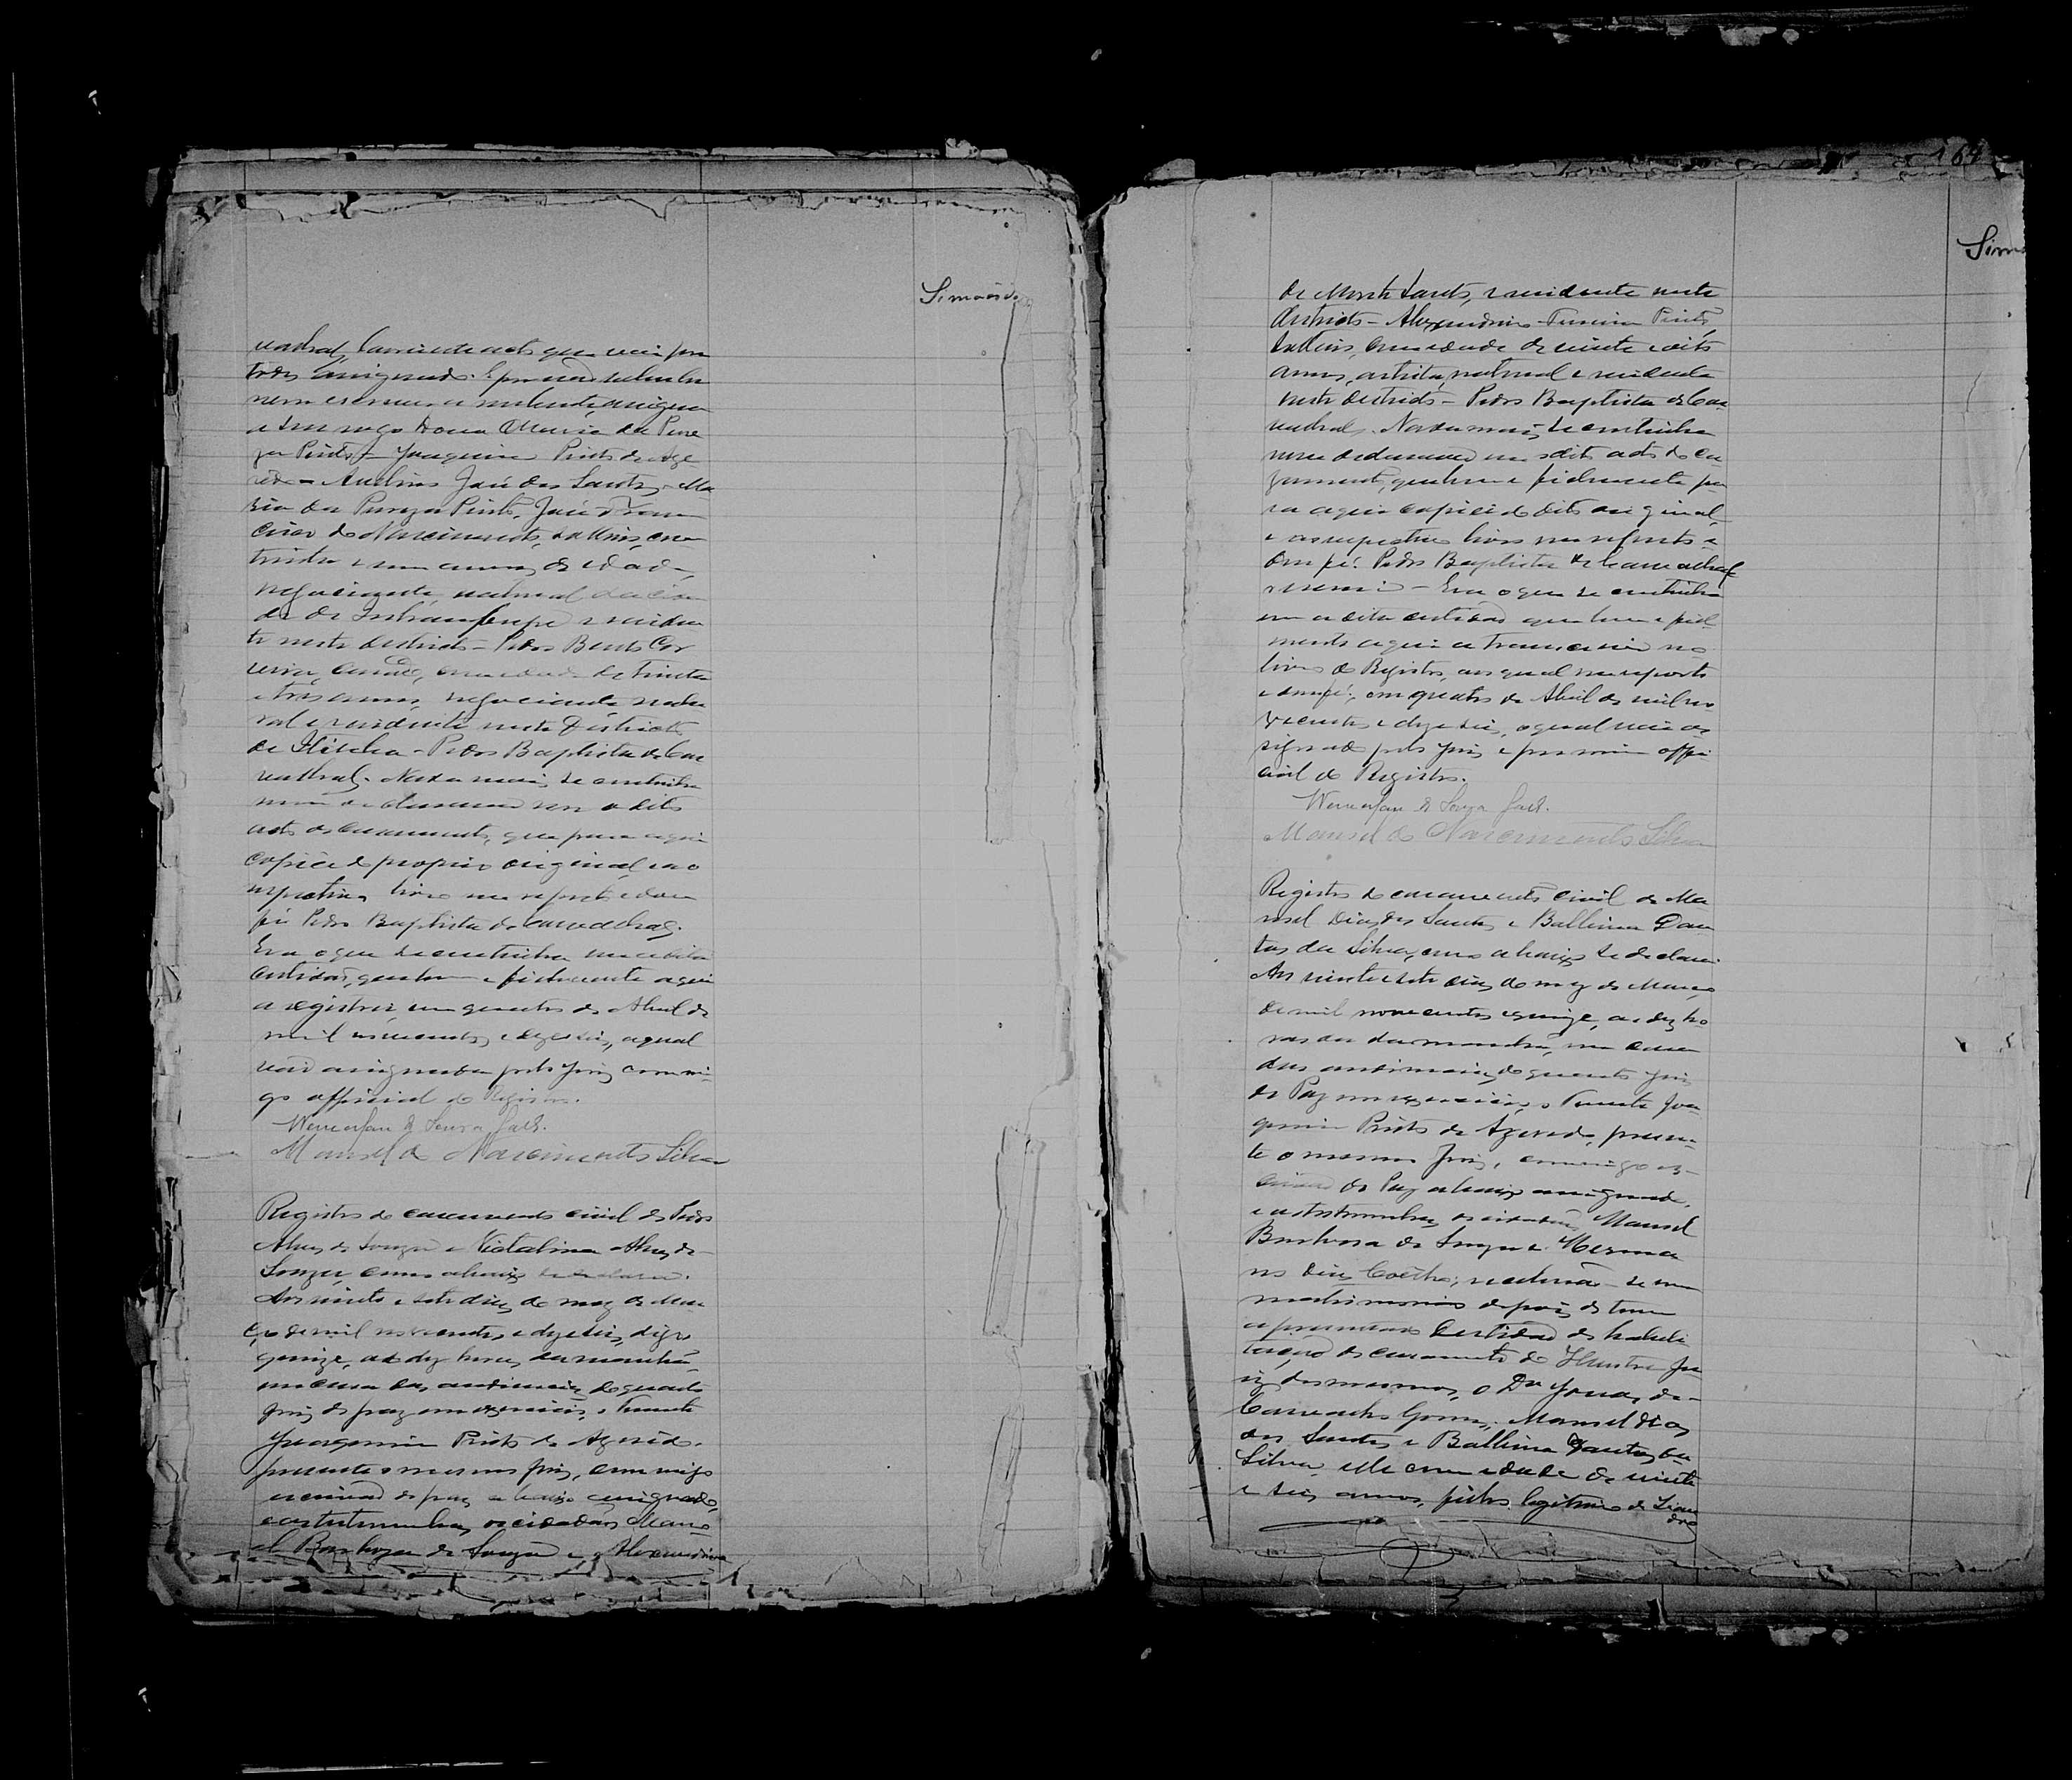 Simões
vadhal, lavrei este acto que vai por
todos assignado. E por não saber ler
nem escrever a nubente, assigna
a seu rogo Dona Maria da Pure
za Pinto = Joaquim Pinto de Aze
vedo = Avelino José dos Santos = Ma
ria da Pureza Pinto, José Fran
cisco do Nascimento, solteiro, com
trinta e um annos de idade,
negociante, natural da cida
de de Inhambupe e residen
te neste districto = Pedro Bento Cor
reia, casado, com idade de trinta
e tres annos, negociante natu
ral e residente neste Districto
de = Pedro Baptista de Car
vadhal. Nada mais se continha
nem declarava em o dito
acto de casamento, que para aqui
copiei do proprio original, e ao
respectivo livro me reporto e dou
fé Pedro Baptista de Carvadhal.
Era o que se continha em a dita
certidão, que bem e fielmente aqui
a registrei, em quatro de Abril de
mil novecentos e dezeseis, a qual
vai assignada pelo Juiz commi-
go official do Registro.
de Souza
Manoel do Nascimento Silva
Registro do casamento civil de Pedro
Alves de Souza e Victalina Alves de
Souza, como abaixo se declara.
Aos vinte e sete dias do mez de Mar
ço de mil novecentos e dezeseis, digo
quinze, as dez horas da manhã
na casa das audiencias do quarto
Juiz de paz em exercicio, o tenente
Joaquim Pinto de Azevedo.
presente o mesmo Juiz, commigo
escrivão de paz abaixo assignado,
e as testemunhas os cidadãos Mano
el Barboza de Souza e Alexandrino
164
Sim
de Monte Santo, e residente neste
districto = Alexandrino Pinto,
solteiro, com idade de vinte e oito
annos, artista, natural e residente
neste districto = Pedro Baptista de Car
vadhal. Nada mais se continha
nem declarava em o dito acto de ca
zamento, que bem e fielmente pa
ra aqui copiei do dito original,
e ao respectivo livro me reporto e
dou fé. Pedro Baptista de Carvadhal
o escrevi = Era o que se continha
em a dita certidão que bem e fiel
mente aqui a transcrevi no
livro de Registro, ao qual me reporto
e dou fé, em quatro de Abril de mil no
vecentos e dezeseis, o qual vai as
signado pelo Juiz e por mim offi
cial do Registro.
de Souza
Manoel do Nascimento Silva
Registro do casamento civil de Ma
noel Dias dos Santos e Balbina Dan
tas da Silva, como abaixo se declara.
Aos vinte e sete dias do mez de Março
de mil novecentos e quinze, as dez ho
ras da manhã, na casa
das audiencias do quarto Juiz
de Paz em exercicio, o Tenente Joa
quim Pinto de Azevedo, presen
te o mesmo Juiz, commigo es-
crivão de Paz abaixo assignado,
e as testemunhas os cidadãos Manoel
Barbosa de Souza e Herma
no Dias Coêlho; receberão-se em
matrimonio depois de terem
apresentado Certidão de habili
tação de casamento do Illustre Ju
iz dos mesmos, o Dr Jonas de
Carvalho Gomes, Manoel Dias
dos Santos e Balbina Dantas da
Silva, elle com idade de vinte
e seis annos, filho legitimo de Lean
dro